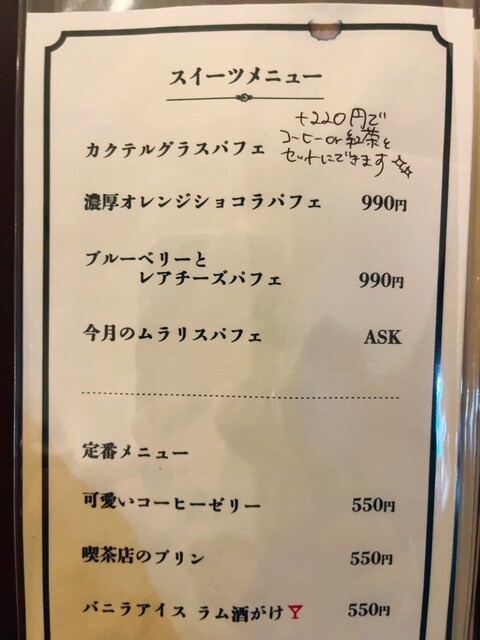 スイーツメニュー
+220円で
コーヒーor紅茶と
セットにできます☆☆
カクテルグラスパフェ
濃厚オレンジショコラパフェ 990円
ブルーベリーと
レアチーズパフェ 990円
今月のムラリスパフェ ASK
定番メニュー
可愛いコーヒーゼリー 550円
喫茶店のプリン 550円
バニラアイス ラム酒がけ🍸 550円